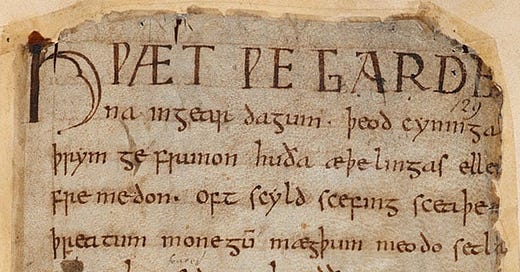 HǷÆT ǷE GARDE
na ingear dagum · þeod cyninga
þrym ge frunon huða æþelingas elle
fre medon · oft scyld scefing sceaþe
þreatum monegū mægþum meodo setla
129